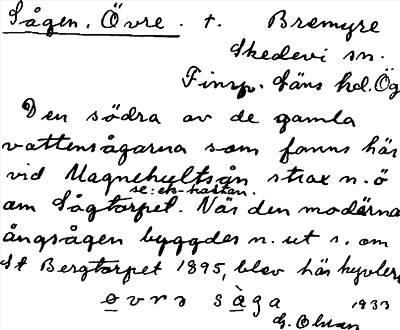 Sågen, Övre. t. Bremyre
Skedevi sn.
Finsp. läns hd. Ög
Den södra av de gamla
vattensågarna som fanns här
vid Magnehultsån strax n. ö
se: ek-kartan.
om Sågtorpet. När den moderna
ångsågen byggdes n. ut s. om
St Bergtorpet 1895, blev här hyvleri
ovrə såga 1933
G. Olsson